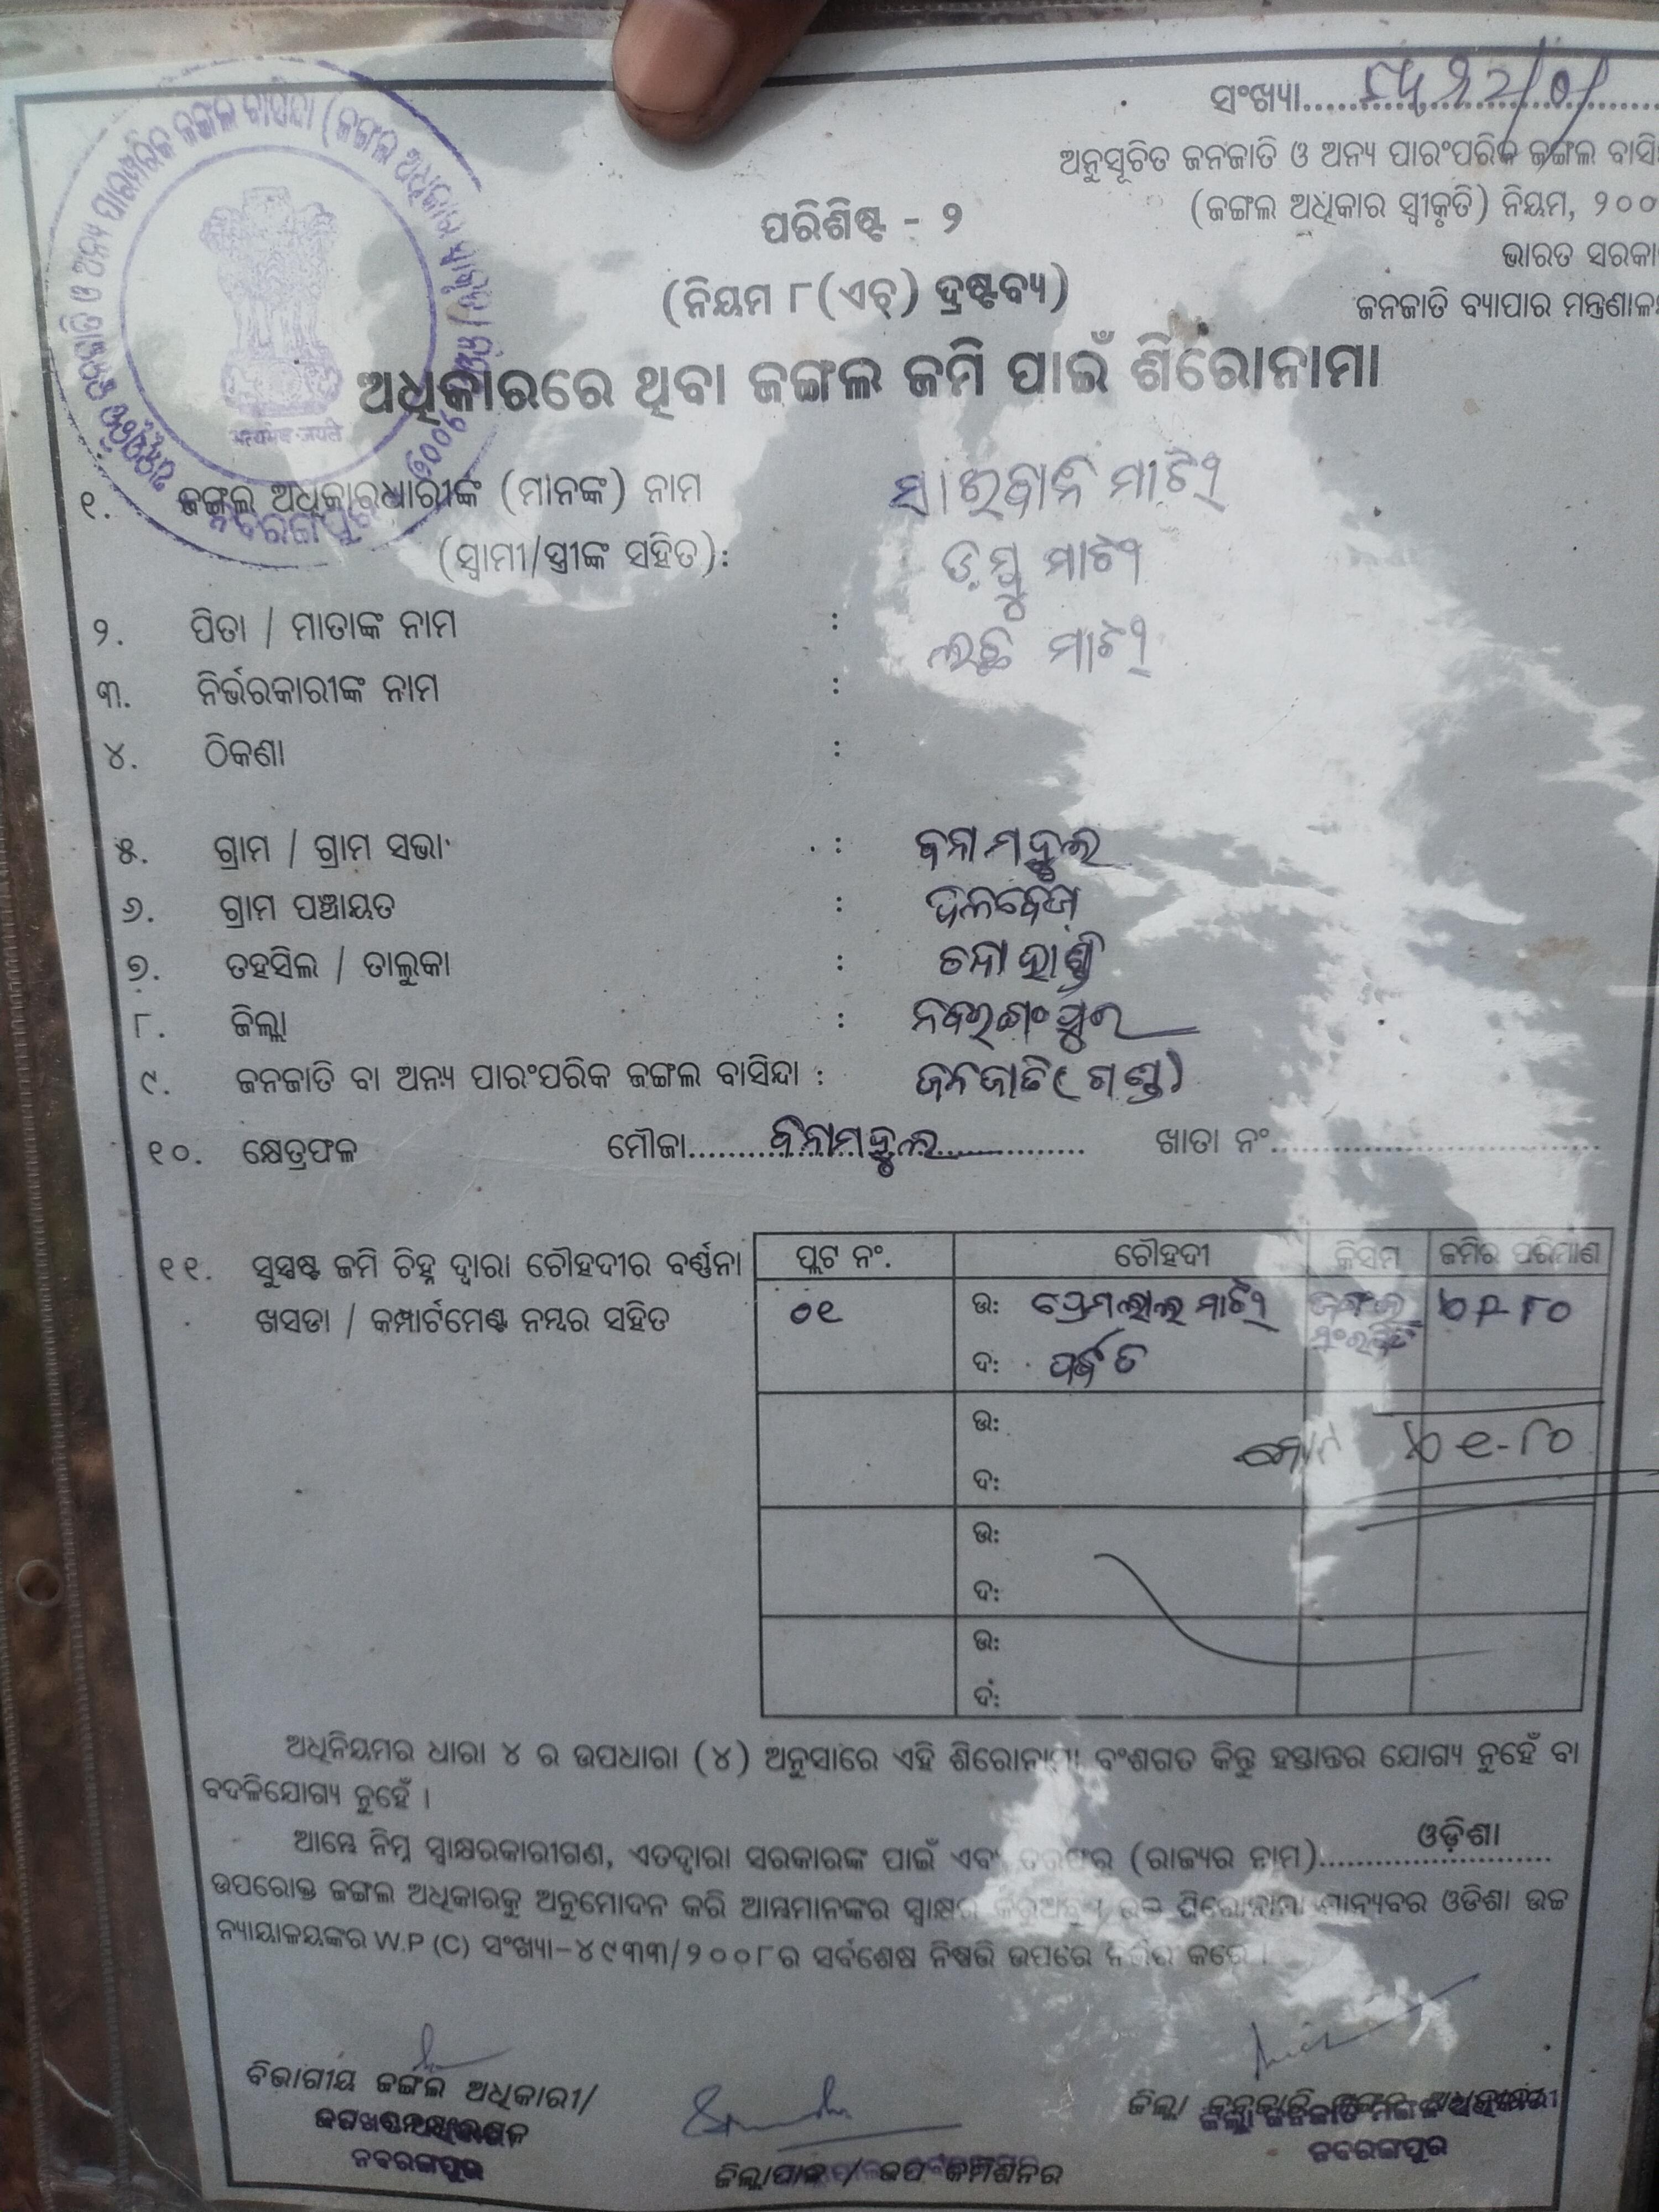 ସଂଖ୍ୟା
ଅନୁସୂଚିତ ଜନଜାତି ଓ ଅନ୍ୟ ପାରଂପରିକ ଜଙ୍ଗଲ ବାସି
(ଜଙ୍ଗଲ ଅଧିକାର ସ୍ୱୀକୃତି) ନିୟମ, ୨୦୦
ଭାରତ ସରକା
ଜନଜାତି ବ୍ୟାପାର ମନ୍ତ୍ରଣାଳ
ପରିଶିଷ୍ଟ - ୨
(ନିୟମ ୮(ଏଚ୍) ଦ୍ରଷ୍ଟବ୍ୟ)
ଅଧିକାରରେ ଥିବା ଜଙ୍ଗଲ ଜମି ପାଇଁ ଶିରୋନାମା
୧. ଜଙ୍ଗଲ ଅଧିକାରଧାରୀଙ୍କ (ମାନଙ୍କ) ନାମ ମାଝି
(ସ୍ୱାମୀ/ସ୍ତ୍ରୀଙ୍କ ସହିତ): ମାଝି
୨. ପିତା / ମାତାଙ୍କ ନାମ : ଲଛି ମାଝି
୩. ନିର୍ଭରକାରୀଙ୍କ ନାମ :
୪. ଠିକଣା :
୫. ଗ୍ରାମ / ଗ୍ରାମ ସଭା : ବନାମହୁଲ
୬. ଗ୍ରାମ ପଞ୍ଚାୟତ :
୭. ତହସିଲ / ତାଲୁକା : ଚନ୍ଦାହାଣ୍ଡି
୮. ଜିଲ୍ଲା : ନବରଙ୍ଗପୁର
୯. ଜନଜାତି ବା ଅନ୍ୟ ପାରଂପରିକ ଜଙ୍ଗଲ ବାସିନ୍ଦା : ଜନଜାତି (ଗଣ୍ଡ)
୧୦. କ୍ଷେତ୍ରଫଳ ମୌଜା ବନାମହୁଲ ଖାତା ନଂ
୧୧. ସୁସ୍ପଷ୍ଟ ଜମି ଚିହ୍ନ ଦ୍ୱାରା ଚୌହଦୀର ବର୍ଣ୍ଣନା ପ୍ଲଟ ନଂ. ଚୌହଦୀ କିସମ ଜମିର ପରିମାଣ
ଖସଡା / କମ୍ପାର୍ଟମେଣ୍ଟ ନମ୍ବର ସହିତ ୦୧ ଉ: ପ୍ରେମଲାଲ ମାଝି ଜଙ୍ଗଲ
ଦ: ପର୍ବତ
ଉ: ମୋଟ
ଦ:
ଉ:
ଦ:
ଉ:
ଦ:
ଅଧିନିୟମର ଧାରା ୪ ର ଉପଧାରା (୪) ଅନୁସାରେ ଏହି ଶିରୋନାମା ବଂଶଗତ କିନ୍ତୁ ହସ୍ତାନ୍ତର ଯୋଗ୍ୟ ନୁହେଁ ବା
ବଦଳିଯୋଗ୍ୟ ନୁହେଁ ।
ଆମ୍ଭେ ନିମ୍ନ ସ୍ୱାକ୍ଷରକାରୀଗଣ, ଏତଦ୍ୱାରା ସରକାରଙ୍କ ପାଇଁ ଏବଂ ତରଫରୁ (ରାଜ୍ୟର ନାମ) ଓଡ଼ିଶା
ଉପରୋକ୍ତ ଜଙ୍ଗଲ ଅଧିକାରକୁ ଅନୁମୋଦନ କରି ଆମ୍ଭମାନଙ୍କର ସ୍ୱାକ୍ଷର କରୁଅଛୁ । ଉକ୍ତ ଶିରୋନାମା ମାନ୍ୟବର ଓଡିଶା ଉଚ୍ଚ
ନ୍ୟାୟାଳୟଙ୍କର W.P (C) ସଂଖ୍ୟା-୪୯୩୩/୨୦୦୮ର ସର୍ବଶେଷ ନିଷ୍ପତ୍ତି ଉପରେ ନିର୍ଭର କରେ ।
ବିଭାଗୀୟ ଜଙ୍ଗଲ ଅଧିକାରୀ/
ନବରଙ୍ଗପୁର
ଜିଲ୍ଲାପାଳ / ଉପ କମିଶନର
ଜିଲ୍ଲା
ନବରଙ୍ଗପୁର